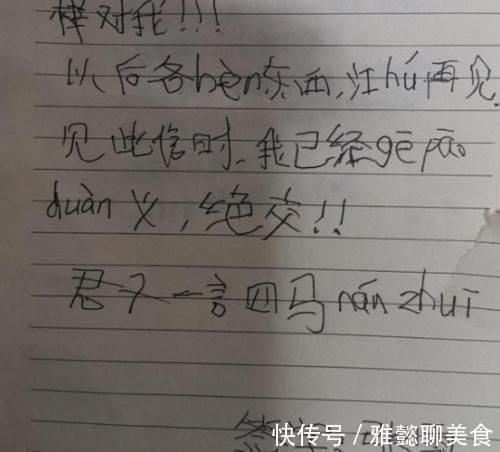 样对我!!!
以后各bèn东西,江hú再见,
见此信时,我已经gē páo
duàn义,绝交!!
君子一言四马nán zhuī
快传号/雅懿聊美食